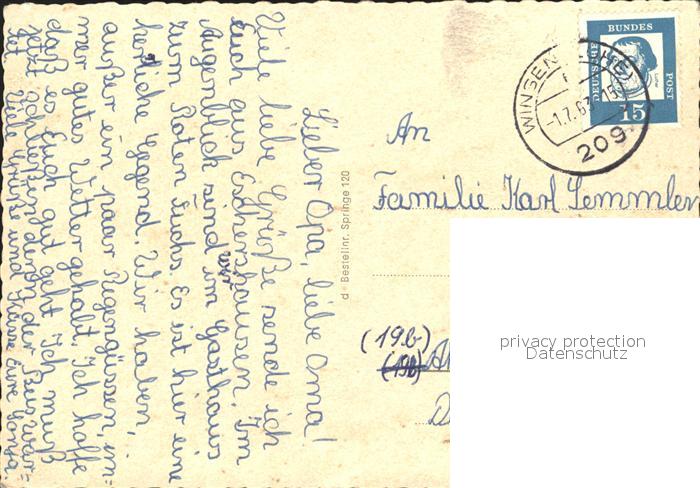 Lieber Opa, liebe Oma!
Viele liebe Grüße sende ich
Euch aus Eschershausen. Im
Augenblick sind wir im Gasthaus
zum Roten Fuchs. Es ist hier eine
herrliche Gegend. Wir haben,
außer ein paar Regengüssen, im=
mer gutes Wetter gehabt. Ich hoffe
daß es Euch gut geht. Ich muß
jetzt schließen, denn der Bus war=
tet. Viele Grüße und Küsse Eure
d - Bestellnr. Springe 120
WINSEN
-1.7.63.-15
209
DEUTSCHE
BUNDES
POST
15
An
Familie Karl Lemmler
(19b)
(19b)
privacy protection
Datenschutz